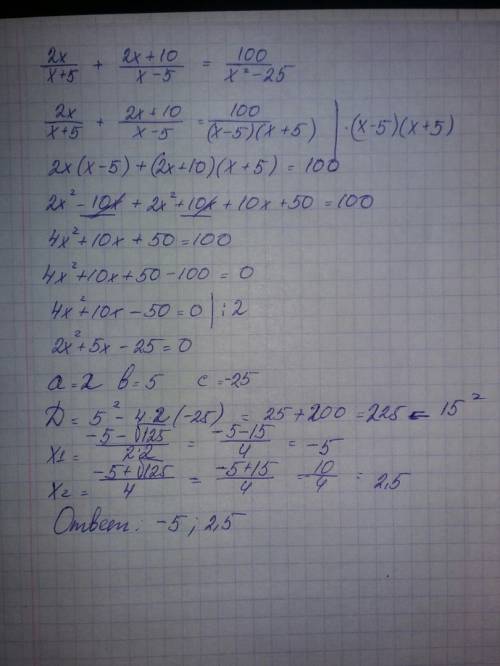 2x/(x+5) + (2x+10)/(x-5) = 100/(x²-25)
2x/(x+5) + (2x+10)/(x-5) = 100/((x-5)(x+5)) | ·(x-5)(x+5)
2x(x-5)+(2x+10)(x+5) = 100
2x²-10x+2x²+10x+10x+50=100
4x²+10x+50=100
4x²+10x+50-100=0
4x²+10x-50=0 | :2
2x²+5x-25=0
a=2 b=5 c=-25
D = 5²-4·2·(-25) = 25+200=225=15²
x1 = (-5-√125)/(2·2) = (-5-15)/4 = -5
x2 = (-5+√125)/4 = (-5+15)/4 = 10/4 = 2,5
Ответ: -5; 2,5